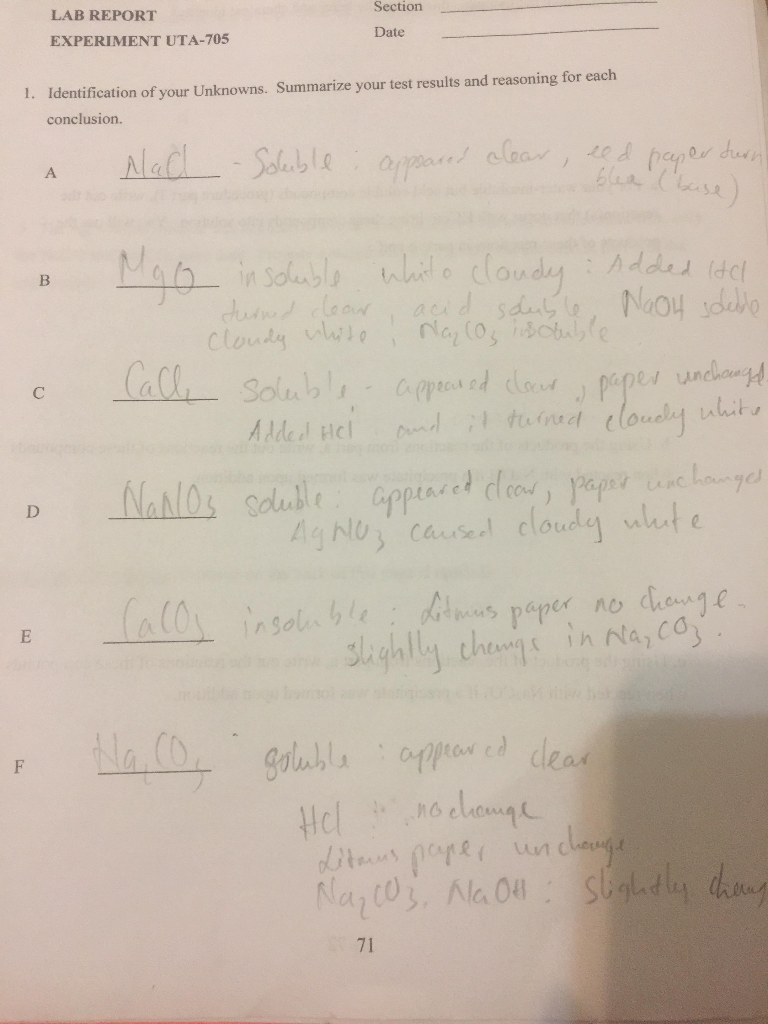 LAB REPORT
Section
EXPERIMENT UTA-705
Date
1. Identification of your Unknowns. Summarize your test results and reasoning for each
conclusion.
A NaCl - Soluble : appeared clear, red paper turn
blue (base)
B MgO insoluble white cloudy : Added HCl
turned clear, acid soluble, NaOH soluble
cloudy white ; Na2CO3 insoluble
C CaCl2 Soluble - appeared clear, paper unchanged
Added HCl and it turned cloudy white
D NaNO3 soluble : appeared clear, paper unchanges
AgNO3 caused cloudy white
E CaCO3 insoluble : Litmus paper no change.
slightly change in Na2CO3.
F Na2CO3 soluble : appeared clear
HCl : no change
Litmus paper unchange
Na2CO3, NaOH : Slightly chang
71